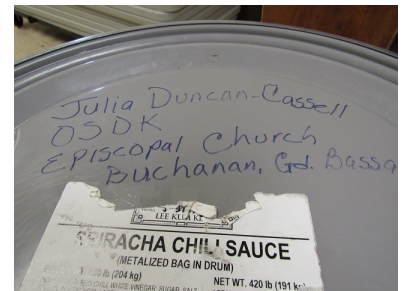 Julia Duncan-Cassell
OSDK
Episcopal Church
Buchanan, Gd. Bassa
LEE KUM KEE
SRIRACHA CHILI SAUCE
(METALIZED BAG IN DRUM)
lb (204 kg)
NET WT. 420 lb (191 kg)
CHILI, WHITE VINEGAR, SUGAR, SALT,